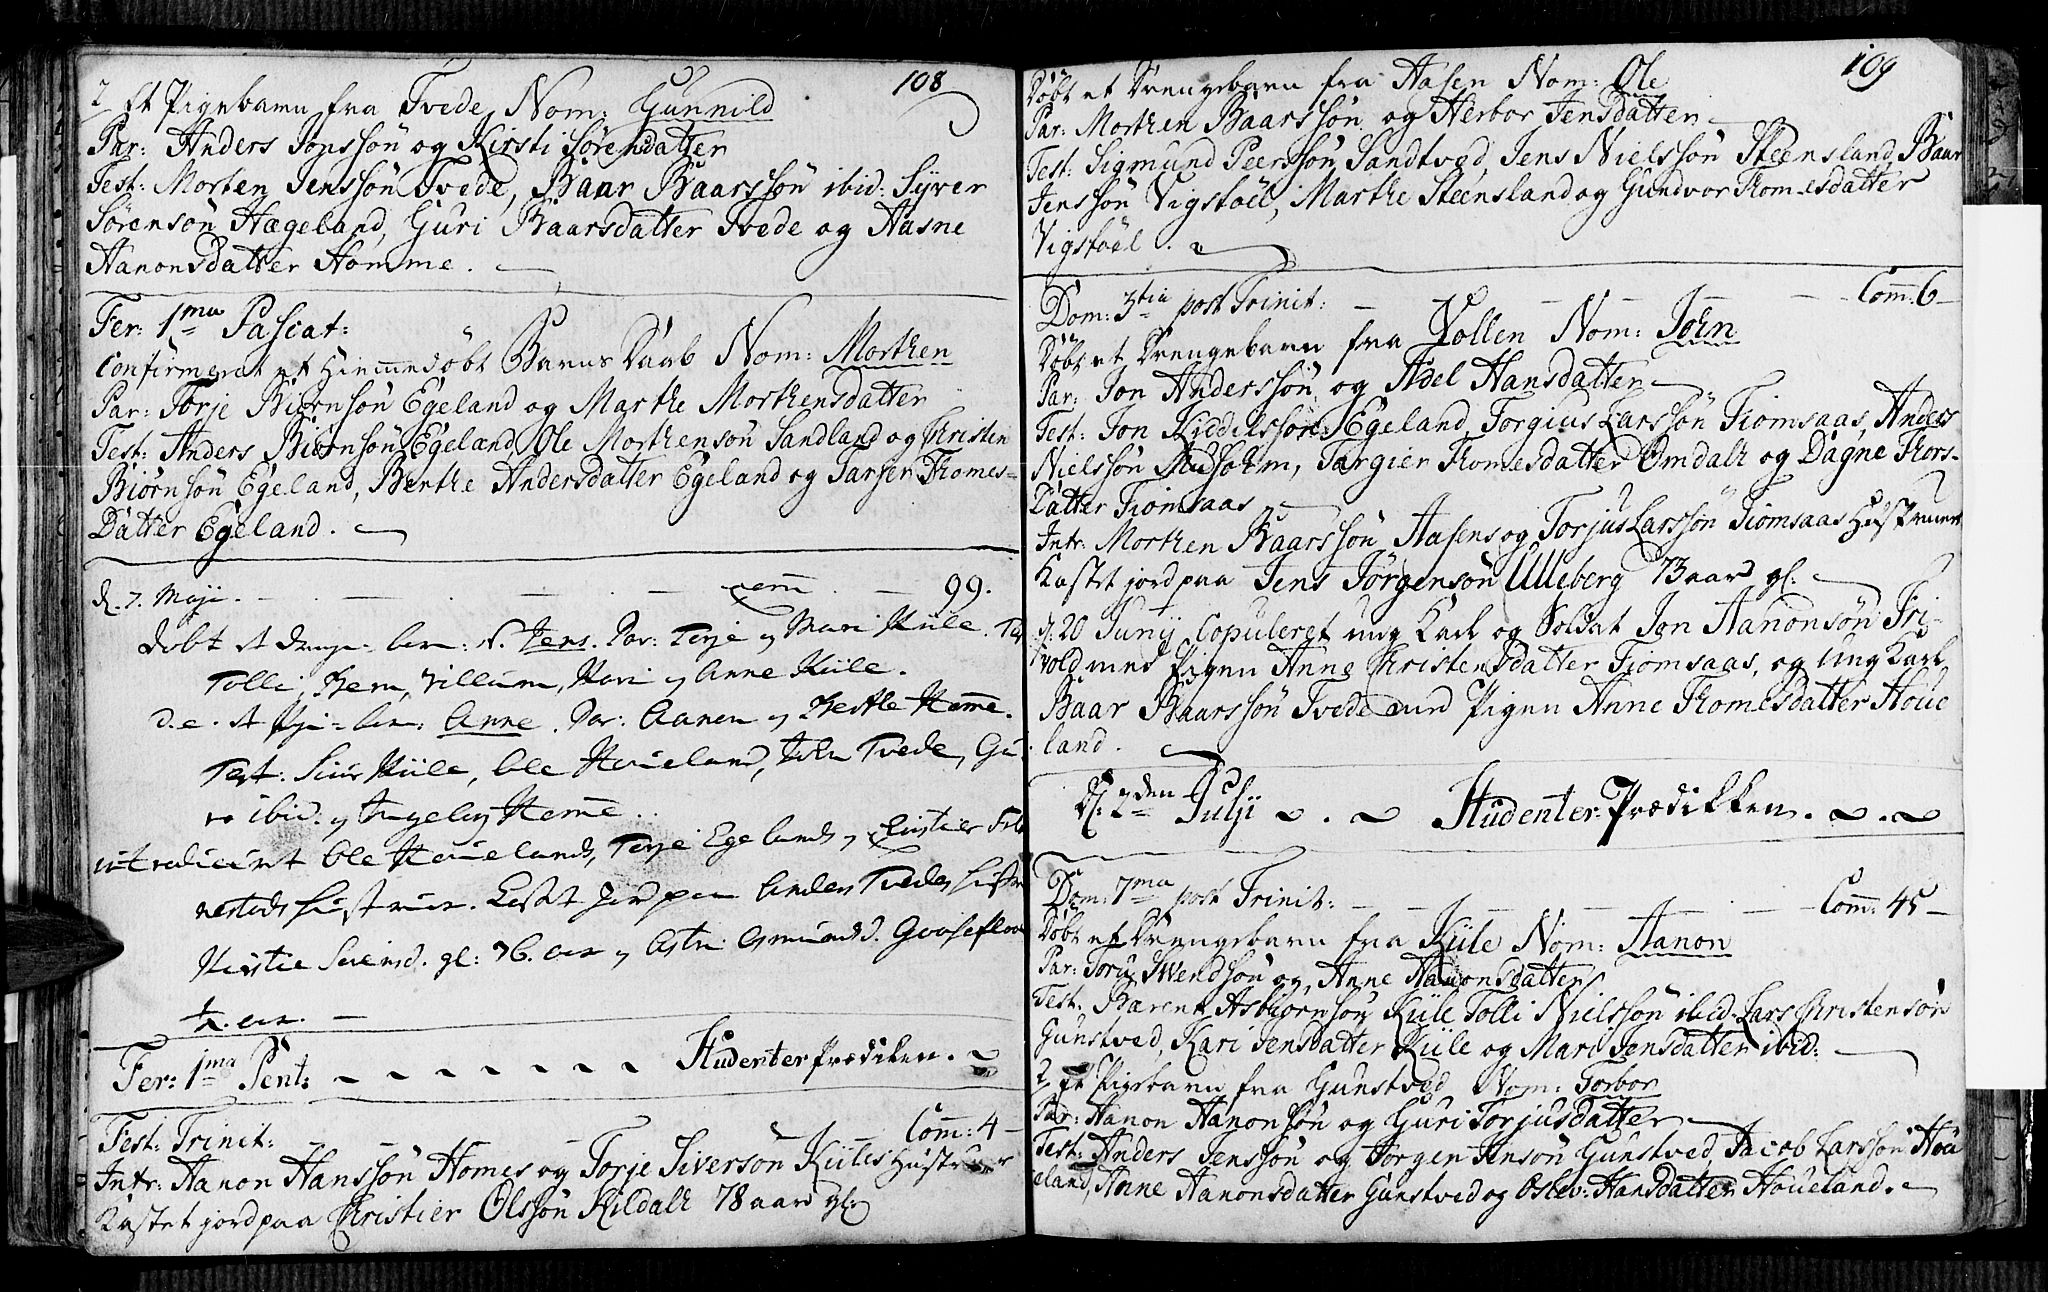 108
2 Et Pigebarn fra Tvede Nom: Gunnild
Par: Anders Jonssøn og Kirsti Sørensdatter
Test: Morten Jenssøn Tvede, Baar Baarssøn ibid: Syver
Sørensøn Hægeland, Guri Baarsdatter Tvede og Aasne
Aanonsdatter Homme.
Fer: 1ma Pascat:
Confirmeret et Hiemmedøbt Barns Daab Nom: Morthen
Par: Torje Biørnsøn Egeland og Marthe Morthensdatter
Test: Anders Biørnsøn Egeland, Ole Morthensøn Sandland og Christen
Biørnsøn Egeland, Berthe Andersdatter Egeland og Tarjer Thomes-
Datter Egeland.
d. 7. Maji. Com 99.
døbt et drenge-barn: N. Jens. Par: Terje og Mari Kiile.
Tolli, Bern, Villum, Kari og Anne Kiile.
d.e. et Pige-barn: Anne. Par: Aanen og Berthe Homme.
Test: Siur Kiile, Ole Houeland, John Tvede, Gu-
ro ibid. og Ingeborg Homme.
introducert Ole Houelands, Terje Egelands og Christier
hustruer. Castet Jord paa Anders Tvedes hustru
Kirstie Sørensd. gl: 76. aar og Astri Asmundsd. Gaaseflaae
1/2. aar.
Fer: 1ma Pent: Studenter Prædiken.
Fest: Trinit: Com: 4
Intr: Aanon Hanssøn Homes og Torje Siversøn Kiiles Hustruer
Kastet jord paa Christier Olssøn Kildahl 78 aar gl:
109
Døbt et Drengebarn fra Aasen Nom: Ole
Par: Morthen Baarssøn og Herbor Jensdatter
Test: Sigmund Peerssøn Sandtved, Jens Nielssøn Steensland, Baar
Jenssøn Vigstøel, Marthe Steensland og Gundvor Thomesdatter
Vigstøel.
Dom: 3tia post Trinit: Com: 6
Døbt et Drengebarn fra Vollen Nom: John
Par: Jon Anderssøn og Adel Hansdatter
Test: Jon Kiddelssøn Egeland, Torgius Larssøn Tiomsaas, Anders
Nielssøn Midholm, Targier Thomesdatter Omdahl og Dagne Thors-
Datter Tiomsaas
Intr: Morthen Baarssøn Aasens og Torjus Larssøn Tiomsaas Hustruer
Kastet jord paa Jens Jørgensøn Ulleberg 73 aar gl:
d: 20 Junij Copuleret ung Karl og Soldat Jon Aanonsøn Fri-
vold med Pigen Anne Christensdatter Tiomsaas, og Ung Karl
Baar Baarssøn Tvede med Pigen Anne Thomesdatter Houe
land.
d: 2den Julji Studenter: Prædikken.
Dom: 7ma post Trinit: Com: 45
Døbt et Drengebarn fra Kiile Nom: Aanon
Par: Toru Swendsøn og Anne Aanonsdatter
Test: Bærent Asbiørnsøn Kiile Tolli Nielssøn ibid. Lars Christensøn
Gunstved, Kari Jensdatter Kiile og Mari Jensdatter ibid:
2 Et Pigebarn fra Gunstved Nom: Torbor
Par: Aanon Aanonsøn og Guri Torjusdatter
Test: Anders Jenssøn og Jørgen Jensøn Gunstved, Jacob Larssøn Hou
eland, Anne Aanonsdatter Gunstved og Oslev: Hansdatter Houeland.